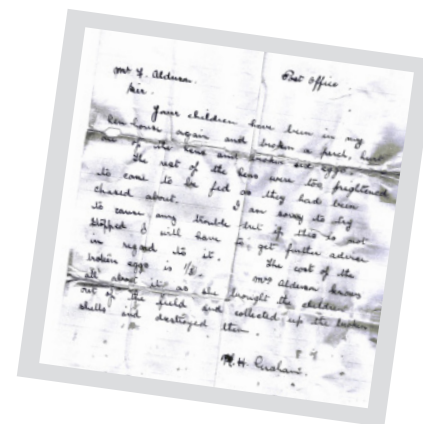 Mr F. Aldusa. Post Office
Sir.
Your children have been in my
hen house again and broken a perch, hurt
one of the hens and broken six eggs.
The rest of the hens were too frightened
to come to be fed as they had been
chased about. I am sorry to try
to cause any trouble but if this is not
stopped I will have to get further advice
in regard to it. The cost of the
broken eggs is 1/6. Mrs Aldusa knows
all about it as she brought the children
out of the field and collected up the broken
shells and destroyed them.
H. H.